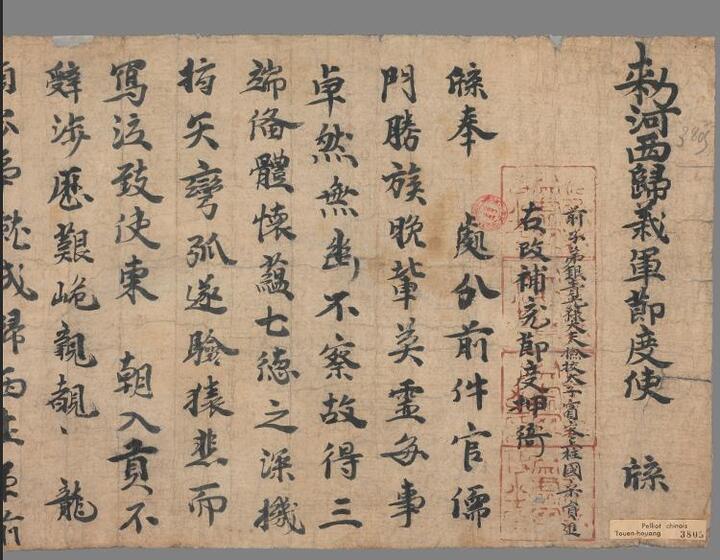 敕河西歸義軍節度使 牒
前子弟銀青光祿大夫檢校太子賓客上柱國宋員進
右改補充節度押衙
牒奉 處分前件官儒
門勝族晚輩英靈每事
卓然無幽不察故得三
端俻體懷蘊七德之深機
矢彎弧遂驗猿悲而
寫泣致使東 朝入貢不
辭涉歷艱危親覲 龍
3805
Pelliot chinois
Touen-houang 3805